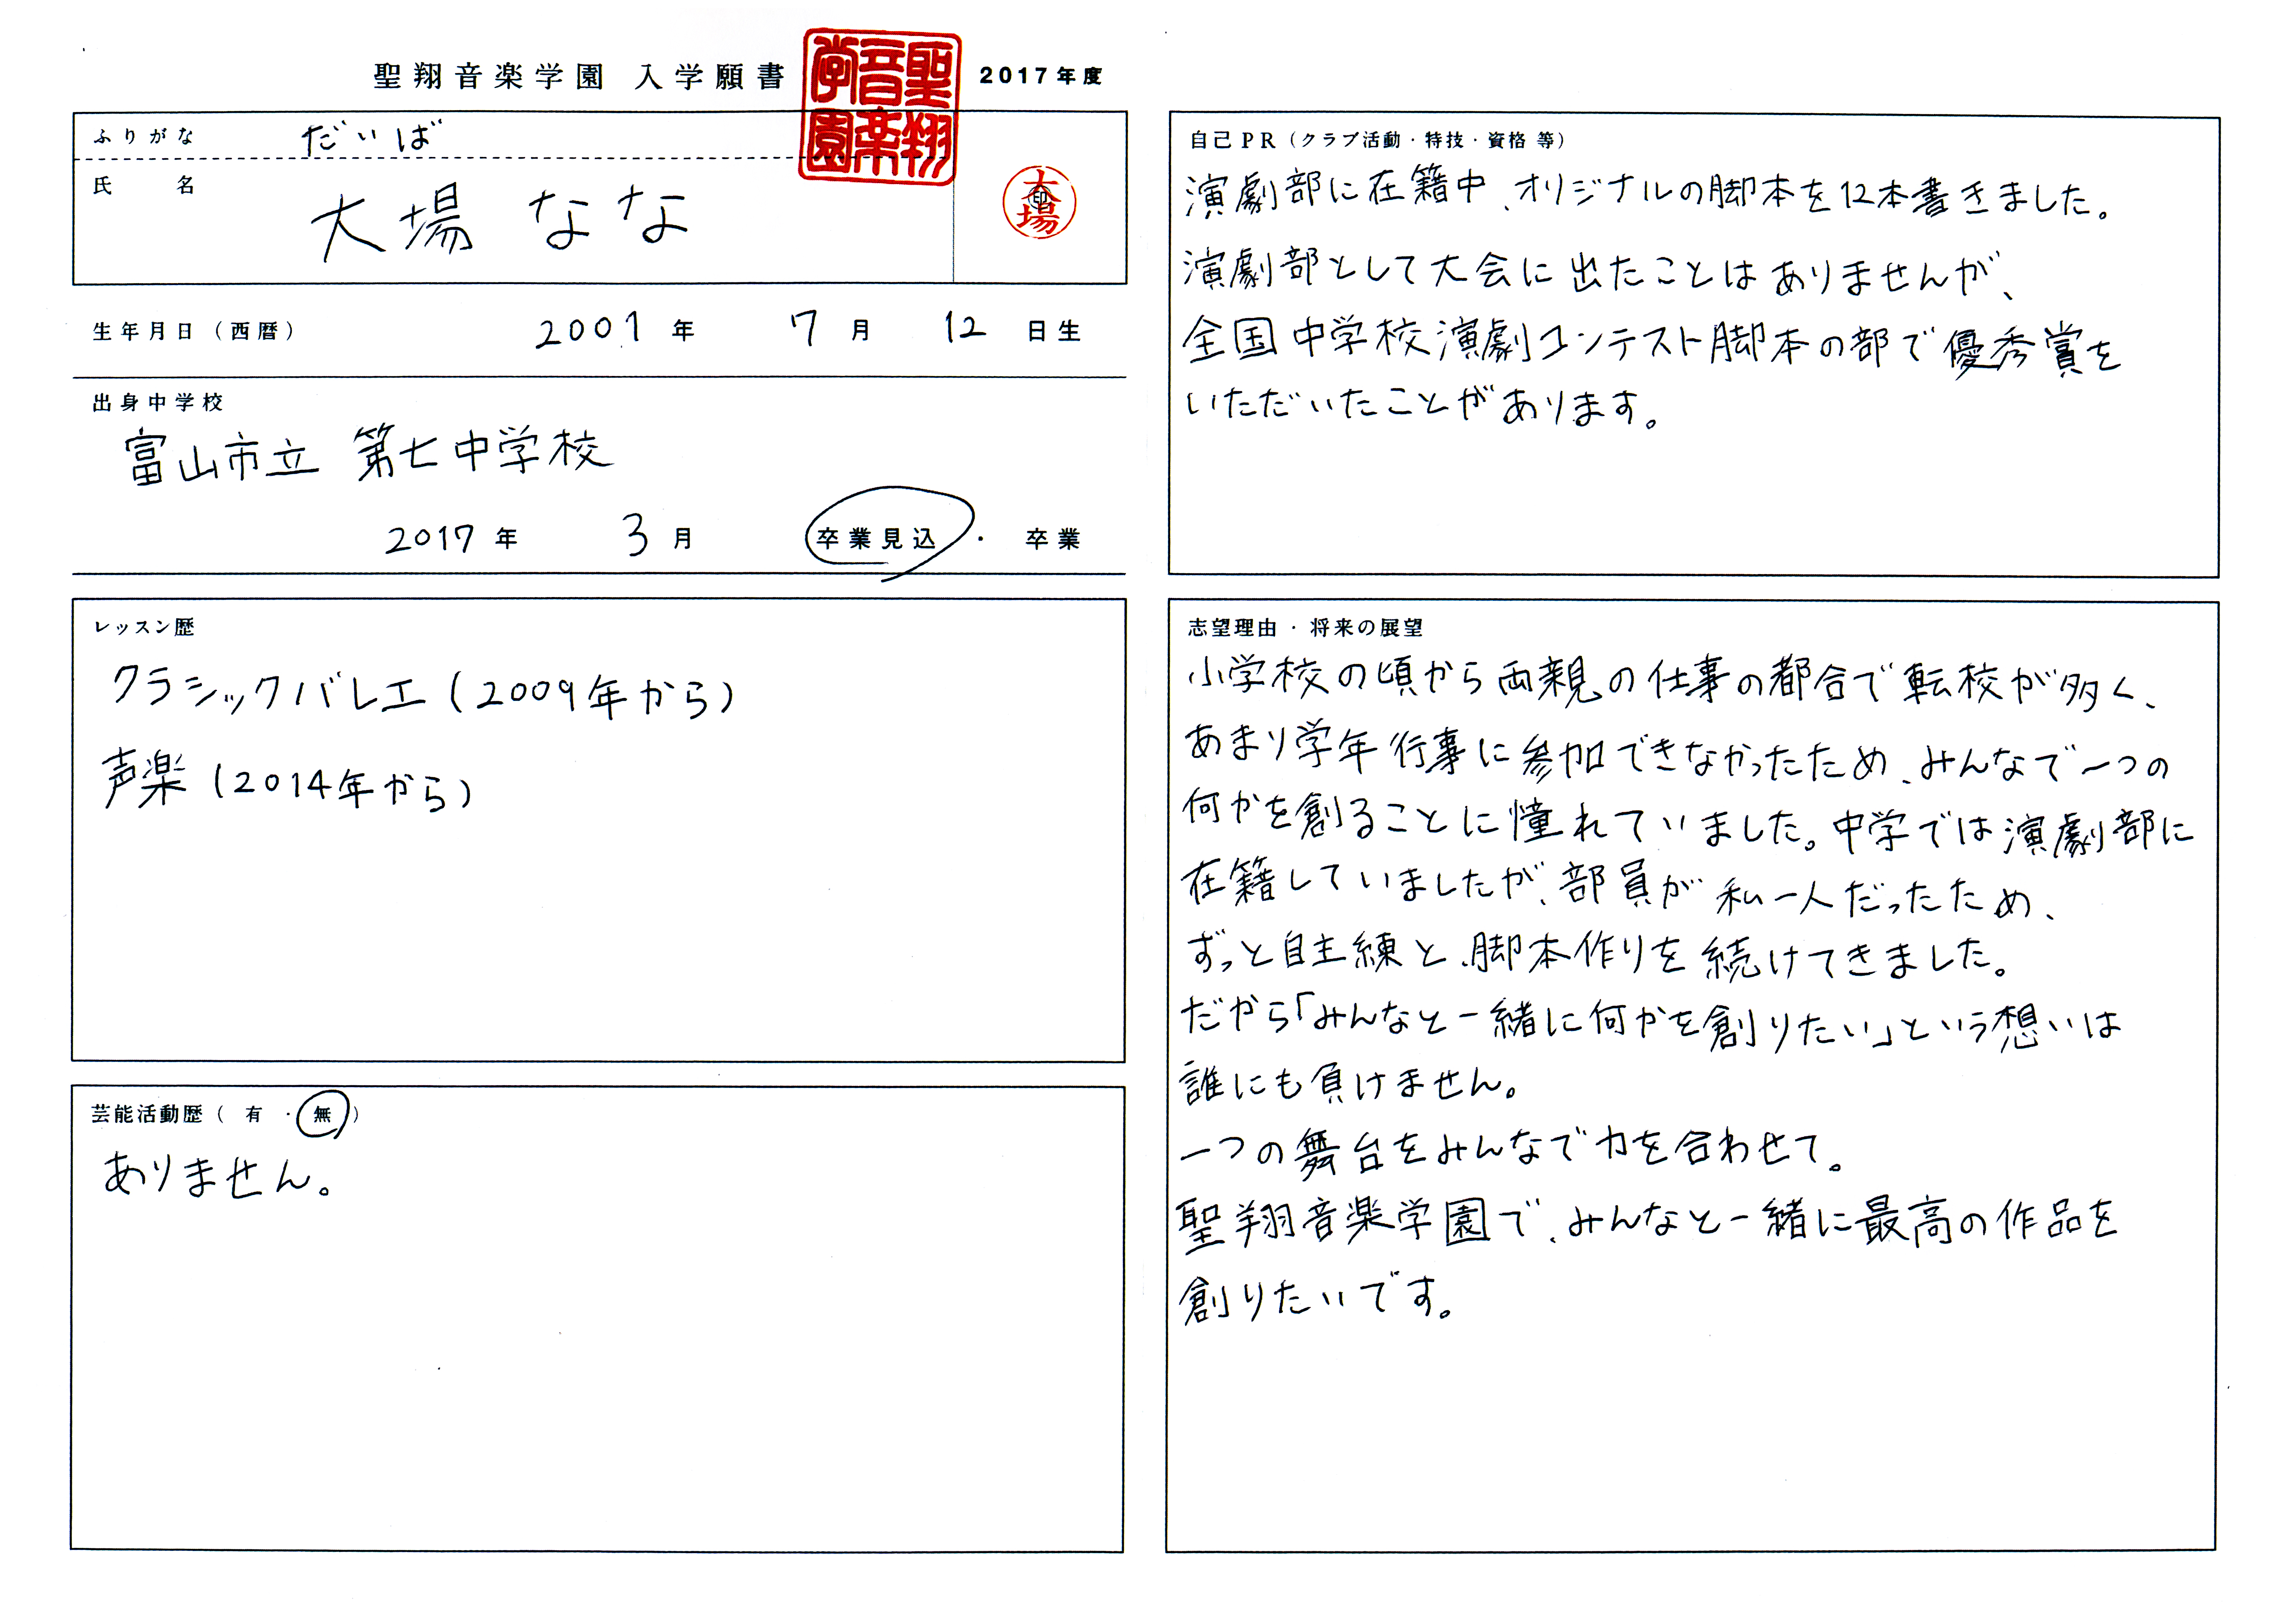 聖翔音楽学園 入学願書 2017年度
聖翔音楽学園
ふりがな だいば
氏名 大場 なな
大場 印
生年月日(西暦) 2001年 7月 12日生
出身中学校
富山市立 第七中学校
2017年 3月 卒業見込・卒業
レッスン歴
クラシックバレエ(2009年から)
声楽(2014年から)
芸能活動歴( 有 ・ 無 )
ありません。
自己PR(クラブ活動・特技・資格 等)
演劇部に在籍中、オリジナルの脚本を12本書きました。
演劇部として大会に出たことはありませんが、
全国中学校演劇コンテスト脚本の部で優秀賞を
いただいたことがあります。
志望理由・将来の展望
小学校の頃から両親の仕事の都合で転校が多く、
あまり学年行事に参加できなかったため、みんなで一つの
何かを創ることに憧れていました。中学では演劇部に
在籍していましたが、部員が私一人だったため、
ずっと自主練と、脚本作りを続けてきました。
だから「みんなと一緒に何かを創りたい」という想いは
誰にも負けません。
一つの舞台をみんなで力を合わせて。
聖翔音楽学園で、みんなと一緒に最高の作品を
創りたいです。